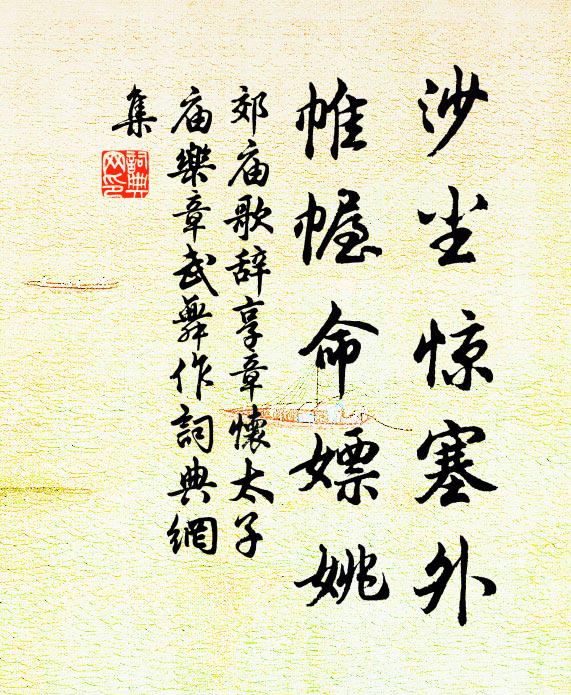 沙尘惊塞外
帷幄命嫖姚
郊庙歌辞享章懷太子
庙樂章武舞作詞典網
集
詞典
网印